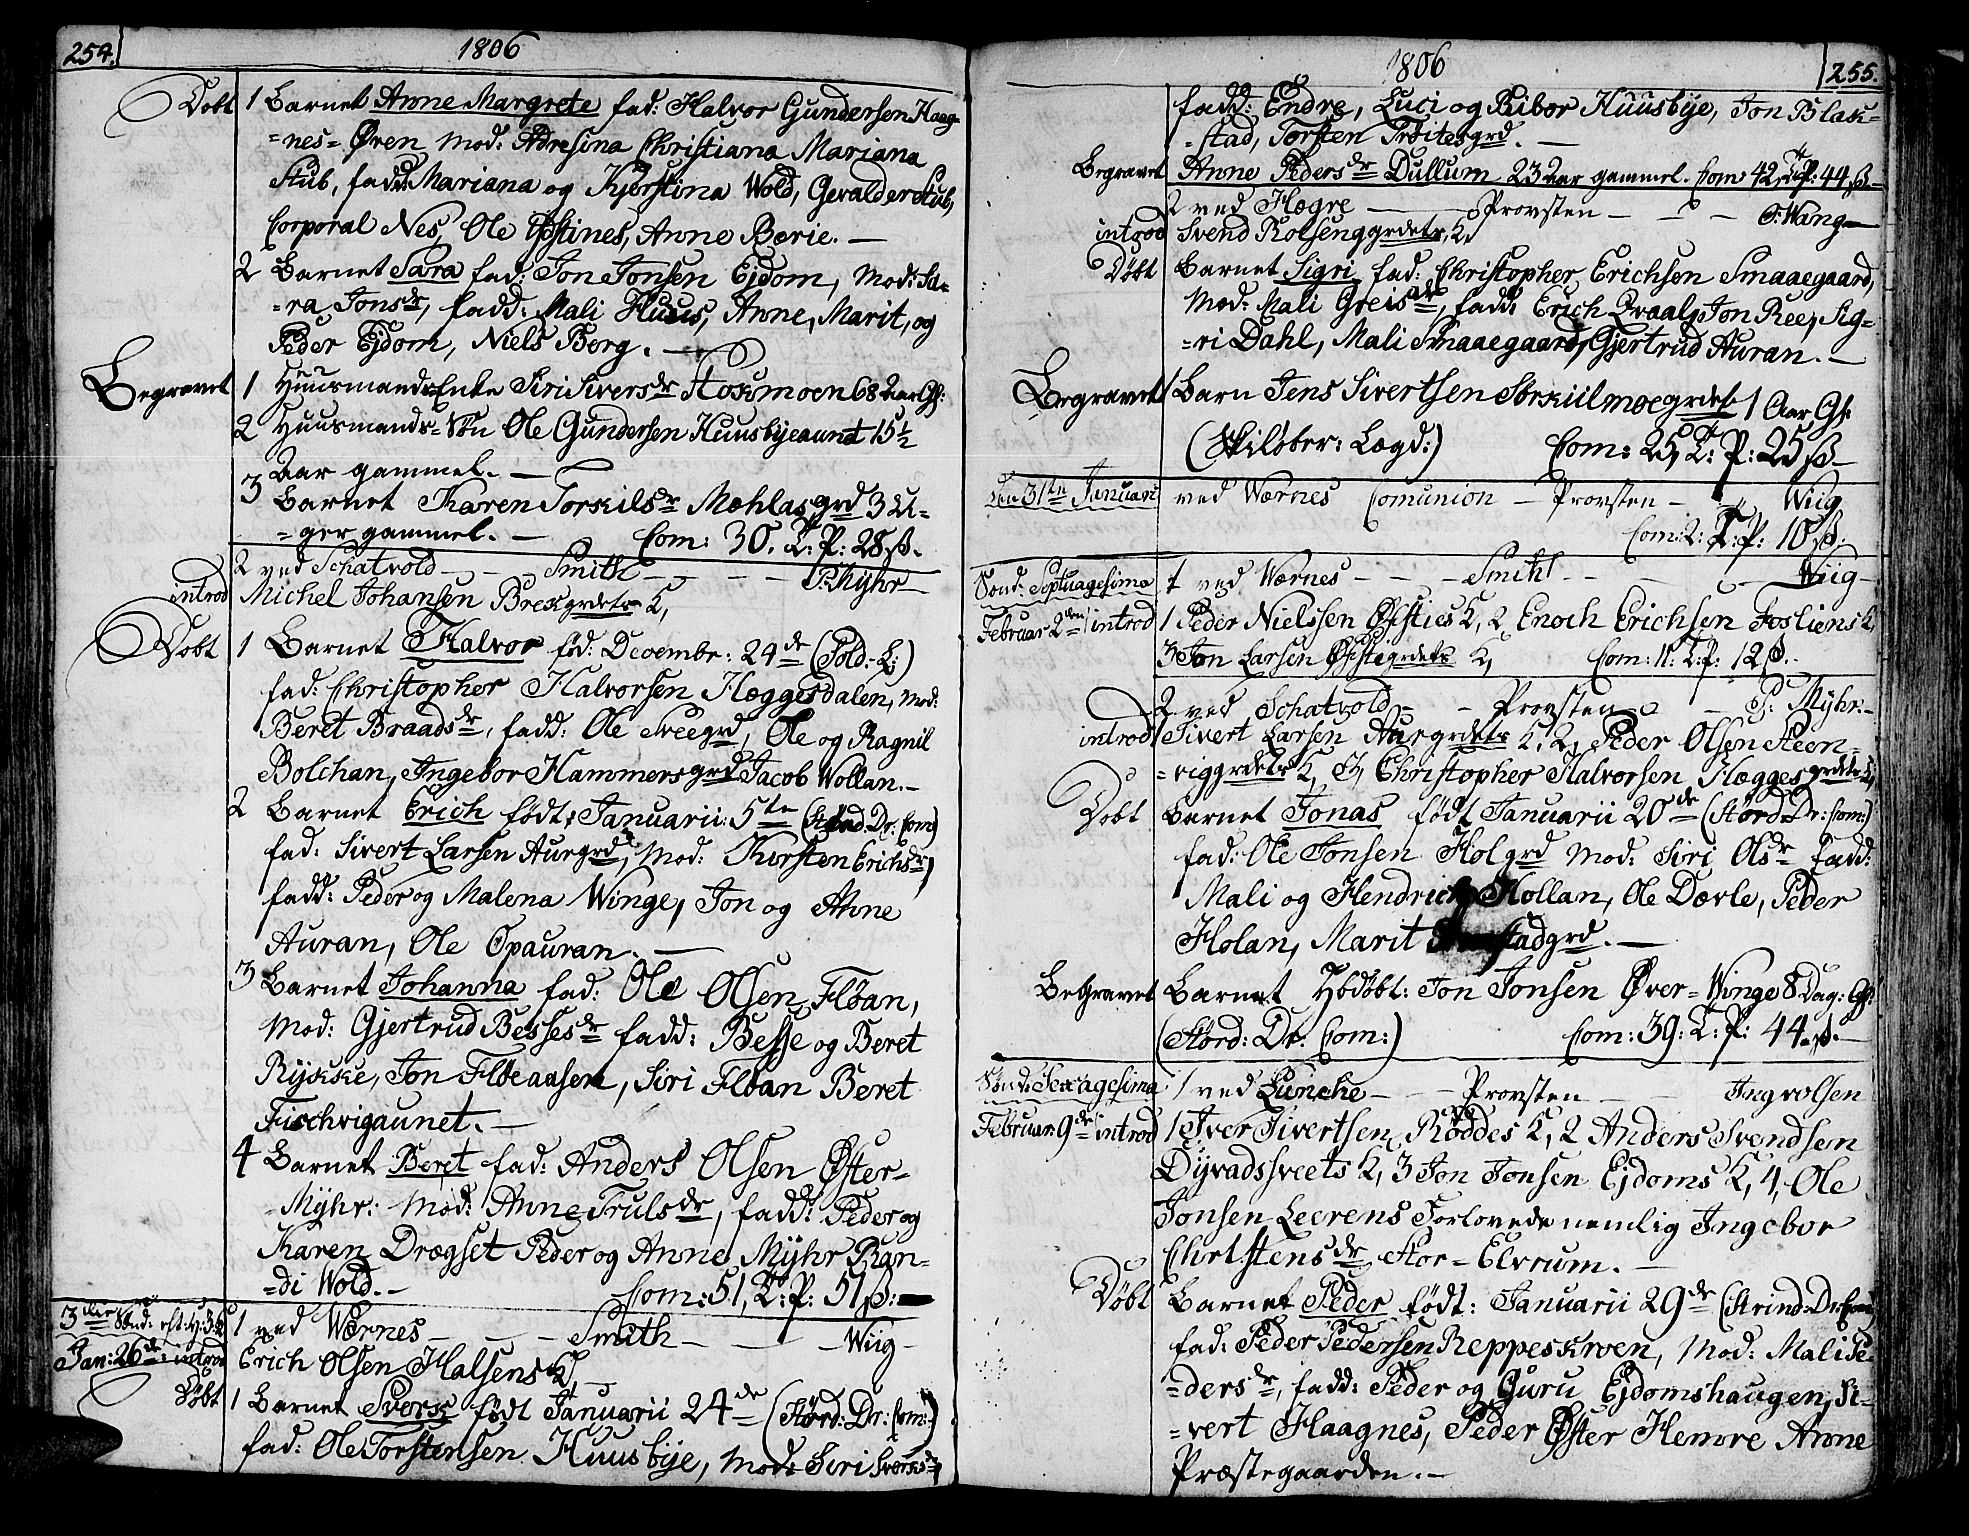 254.
1806
Døbt 1 Barnet Anne Margrete fad: Halvor Gundersen Haag-
=nes=Øren Mod: Adresina Christiana Mariana
Stub, fadd: Mariana og Kjerstina Wold, Geralder Stub,
Corporal Nes, Ole Anne Børie. —
2 Barnet Sara fad: Jon Jonsen Ejdom, Mod: Sa-
=ra Jonsdr, fadd: Mali Huus, Anne, Marit, og
Peder Ejdom, Niels Borg. —
Begravet 1 Huusmands Enke Siri Siversdr Hoksmoen 68 Aar Gl:
2 Huusmands=Søn Ole Gundersen Huusbyeaunet 15½
Aar gammel. —
3 Barnet Karen Torkilsdr Mæhlasgrd 3 U-
=ger gammel. — Com: 30. T: P: 28 ß.
2 ved Schatvold — Smith — P: Myhr —
introd Michel Johansen Brekgrdets K,
Døbt 1 Barnet Halvor fød: Decembr: 24de (Sold:-L:)
fad: Christopher Halvorsen Hæggesdalen, Mod:
Beret Braadsdr, fadd: Ole Sveegrd, Ole og Ragnil
Bolchan, Ingebor Hammersgrd Jacob Wollan. —
2 Barnet Erich født: Januarii: 5te (Størd: Dr: Com)
fad: Sivert Larsen Aurgrd, Mod: Kirsten Erichsdr,
fadd: Peder og Malena Winge, Jon og Anne
Auran, Ole Opauran. —
3 Barnet Johanna fad: Ole Olsen Fløan,
Mod: Gjertrud Bessesdr fadd: Besse og Beret
Rykke, Jon Fløeaasen, Siri Fløan Beret
Fischvigaunet. —
4 Barnet Beret fad: Anders Olsen Øster-
Myhr: Mod: Anne Trulsdr, fadd: Peder og
Karen Drøgset Peder og Anne Myhr Ran-
=di Wold. — Com: 51, T: P: 51 ß: —
3die Sønd: eft: H: 3 K 1 ved Wærnes — — Smith — Wiig —
Jan: 26de: introd Erich Olsen Halsens K, —
Døbt 1 Barnet Sverk født Januarii 24de (Størd: Dr: Com:)
fad: Ole Torstensen Huusbye, Mod: Siri Sverksdr
255.
1806
fadd: Endre, Luci og Ribor Huusbye, Jon Blak-
=stad, Torsten Trøitesgrd. —
Begravet Anne Pedersdr Dullum 23 Aar gammel. Com 42, T: P: 44 ß —
2 ved Hegre — Provsten — — — S: Wang —
introd Svend Rolsenggrdets K
Døbt Barnet Sigri, fad: Christopher Erichsen Smaaegaard,
Mod: Mali Greisdr, fadd: Erich Qvaal, Jon Ree, Sig-
=ri Dahl, Mali Smaaegaard, Gjertrud Auran. —
Begravet Barn Jens Sivertsen Torkiilmoegrdet 1 Aar Gl:
(Skiløber: Lægd:) Com: 25, T: P: 25 ß —
den 31te Januari ved Wærnes Comunion — Provsten — Wiig
Com: 2: T: P: 10 ß.
Sønd: Septuagesima 1 ved Wærnes — — — Smith — — Wiig —
Februar 2den introd 1 Peder Nielssen Øfsties K, 2 Enoch Erichsen Fosliens K,
3 Jon Larsen Øfstiegrdets K, Com: 11: T: P: 12 ß.
2 ved Schatvold — — Provsten — — P: Myhr —
introd Sivert Larsen Aurgrdets K, 2, Peder Olsen Steen-
=viggrdets K, 3, Christopher Halvorsen Hæggesgrdets K,
Døbt Barnet Jonas født Januarii 20de (Størd: Dr: Com:)
fad: Ole Jonsen Holgrd Mod: Siri Olsdr Fadd:
Mali og Hendrich Hollan, Ole Dærle, Peder
Holan, Marit
Begravet Barnet Hbdøbt: Jon Jonsen Øver=Winge 8 Dag: Gl:
(Størd: Dr. Com:) Com: 39: T: P: 44. ß. —
Sønd: Sexagesima 1 ved Luncke — — Provsten — — Ingvolsen
Februar 9de introd 1 Iver Sivertsen Røddes K, 2 Anders Svendsen
Dyvadssveets K, 3 Jon Jonsen Ejdoms K, 4, Ole
Jonsen Leerens Forlovede nemlig Ingebor
Christensdr Stor=Elvrum. —
Døbt Barnet Peder født: Januarii 29de (Strind: Dr: Com
fad: Peder Pedersen Reppeskroen, Mod: Mali Pe-
=dersdr, fadd: Peder og Guru Ejdomshaugen, Si-
=vert Haagnes, Peder Øster Hemre Anne
Præstegaarden. —